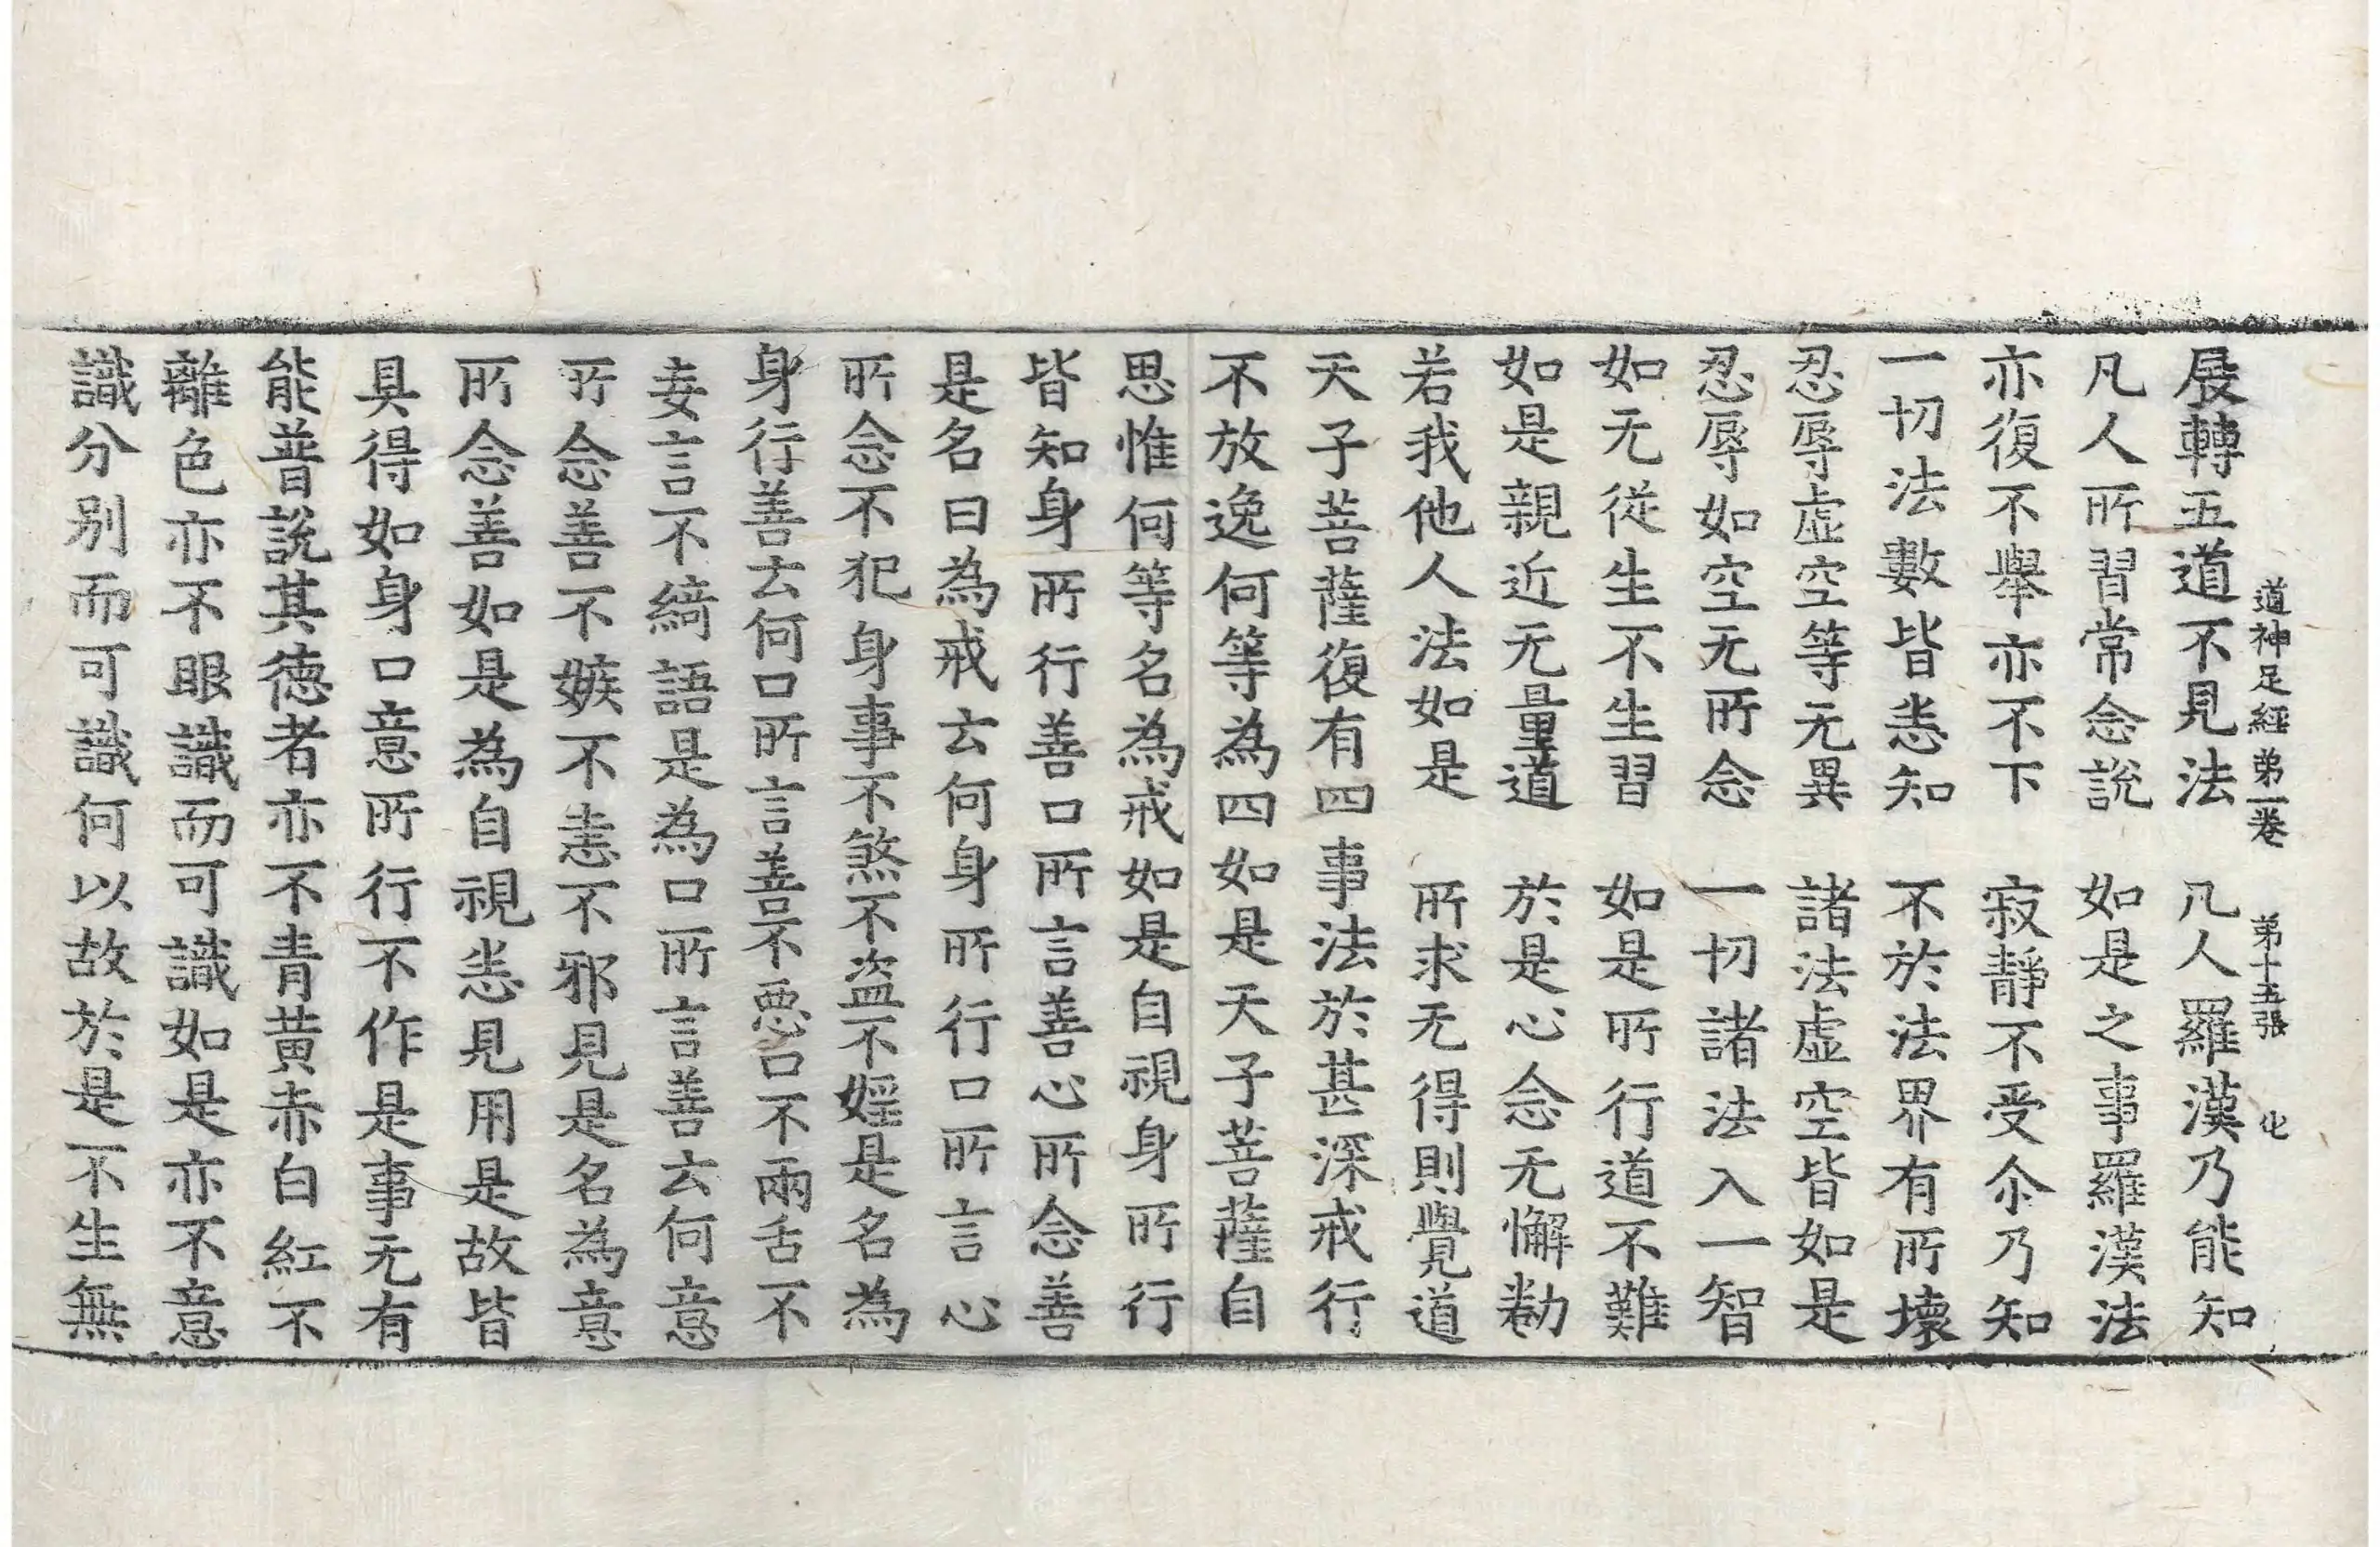 道神足經第一卷　第十五張　化
展轉五道不見法　凡人羅漢乃能知
凡人所習常念說　如是之事羅漢法
亦復不舉亦不下　寂靜不受尒乃知
一切法數皆悉知　不於法界有所壞
忍辱虛空等无異　諸法虛空皆如是
忍辱如空无所念　一切諸法入一智
如无從生不生習　如是所行道不難
如是親近无量道　於是心念无懈勌
若我他人法如是　所求无得則覺道
天子菩薩復有四事法於甚深戒行
不放逸何等為四如是天子菩薩自
思惟何等名為戒如是自視身所行
皆知身所行善口所言善心所念善
是名曰為戒云何身所行口所言心
所念不犯身事不煞不盜不婬是名為
身行善云何口所言善不惡口不兩舌不
妄言不綺語是為口所言善云何意
所念善不嫉不恚不邪見是名為意
所念善如是為自視悉見用是故皆
具得如身口意所行不作是事无有
能普說其德者亦不青黃赤白紅不
離色亦不眼識而可識如是亦不意
識分別而可識何以故於是不生無